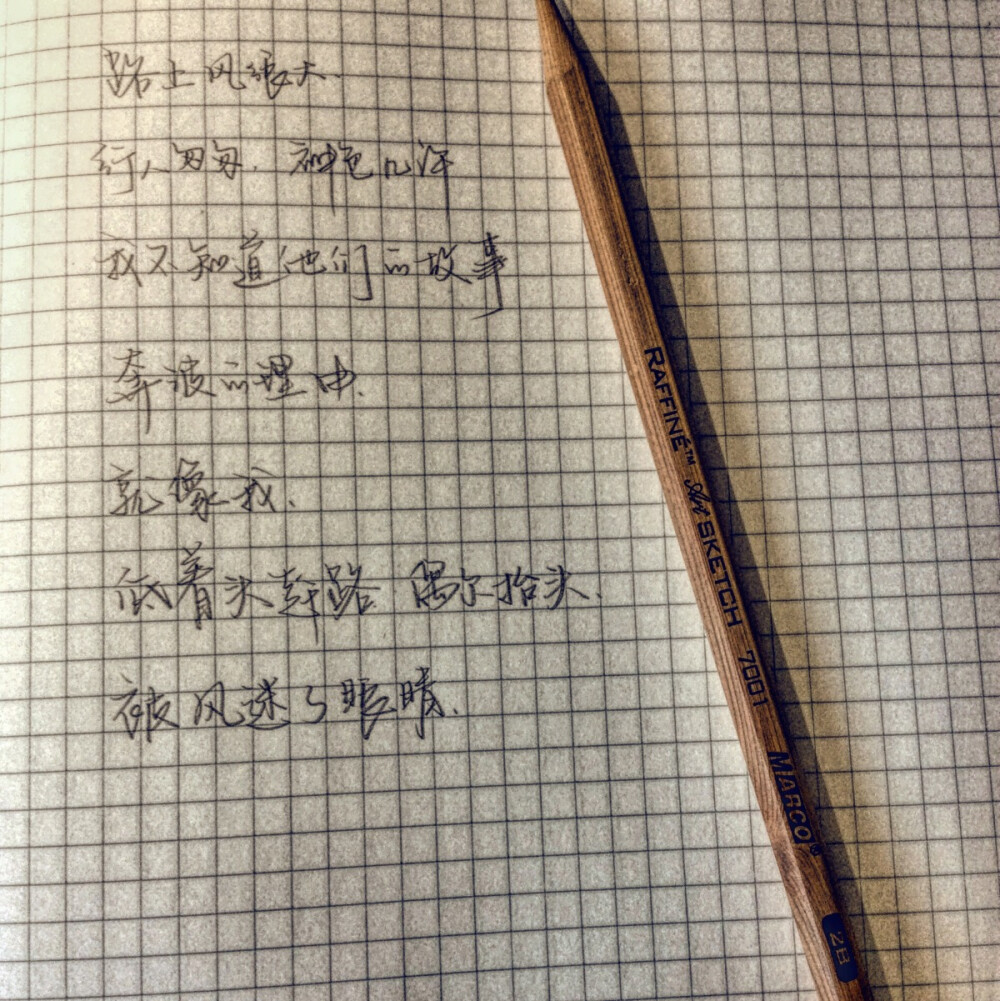 路上风很大.
行人匆匆. 神色几许
我不知道他们的故事
奔波的理由.
就像我.
低着头赶路 偶尔抬头.
被风迷了眼睛.
RAFFINÉ™ Art SKETCH 7001 MARCO® 2B